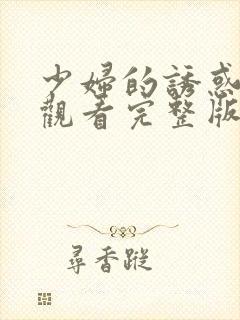 少婦的誘惑
觀看完整版
尋香蹤